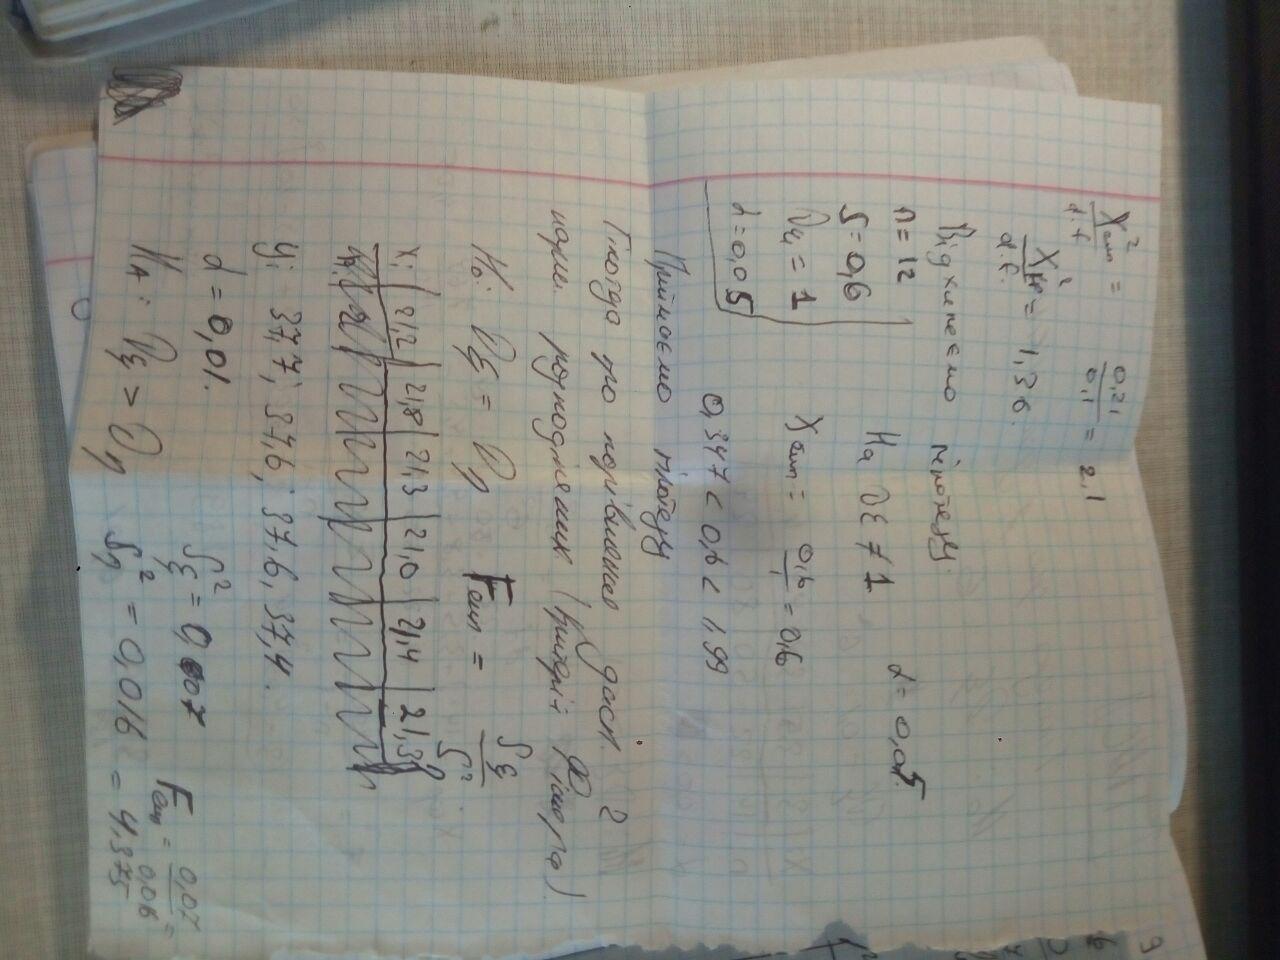 X²емп / d.f = 0,21 / 0,1 = 2,1
X²кр / d.f. = 1,36.
Відхиляємо гіпотезу
n = 12
S = 0,6
Dξ = 1
α = 0,05
Hа Dξ ≠ 1 α = 0,05.
Xемп = 0,6 / 1 = 0,6
0,347 < 0,6 < 1,99
Приймаємо гіпотезу
Гіпотеза про порівняння дисп. 2
норм. розподілених (Критерій Фішера).
H₀: Dξ = Dη Fемп = Sξ / S²η
Xi 21,2 21,8 21,3 21,0 21,4 21,3
yi 37,7; 37,6; 37,6, 37,4.
α = 0,01.
HА: Dξ > Dη
S²ξ = 0,007
S²η = 0,016
Fемп = 0,07 / 0,06 =
= 4,375